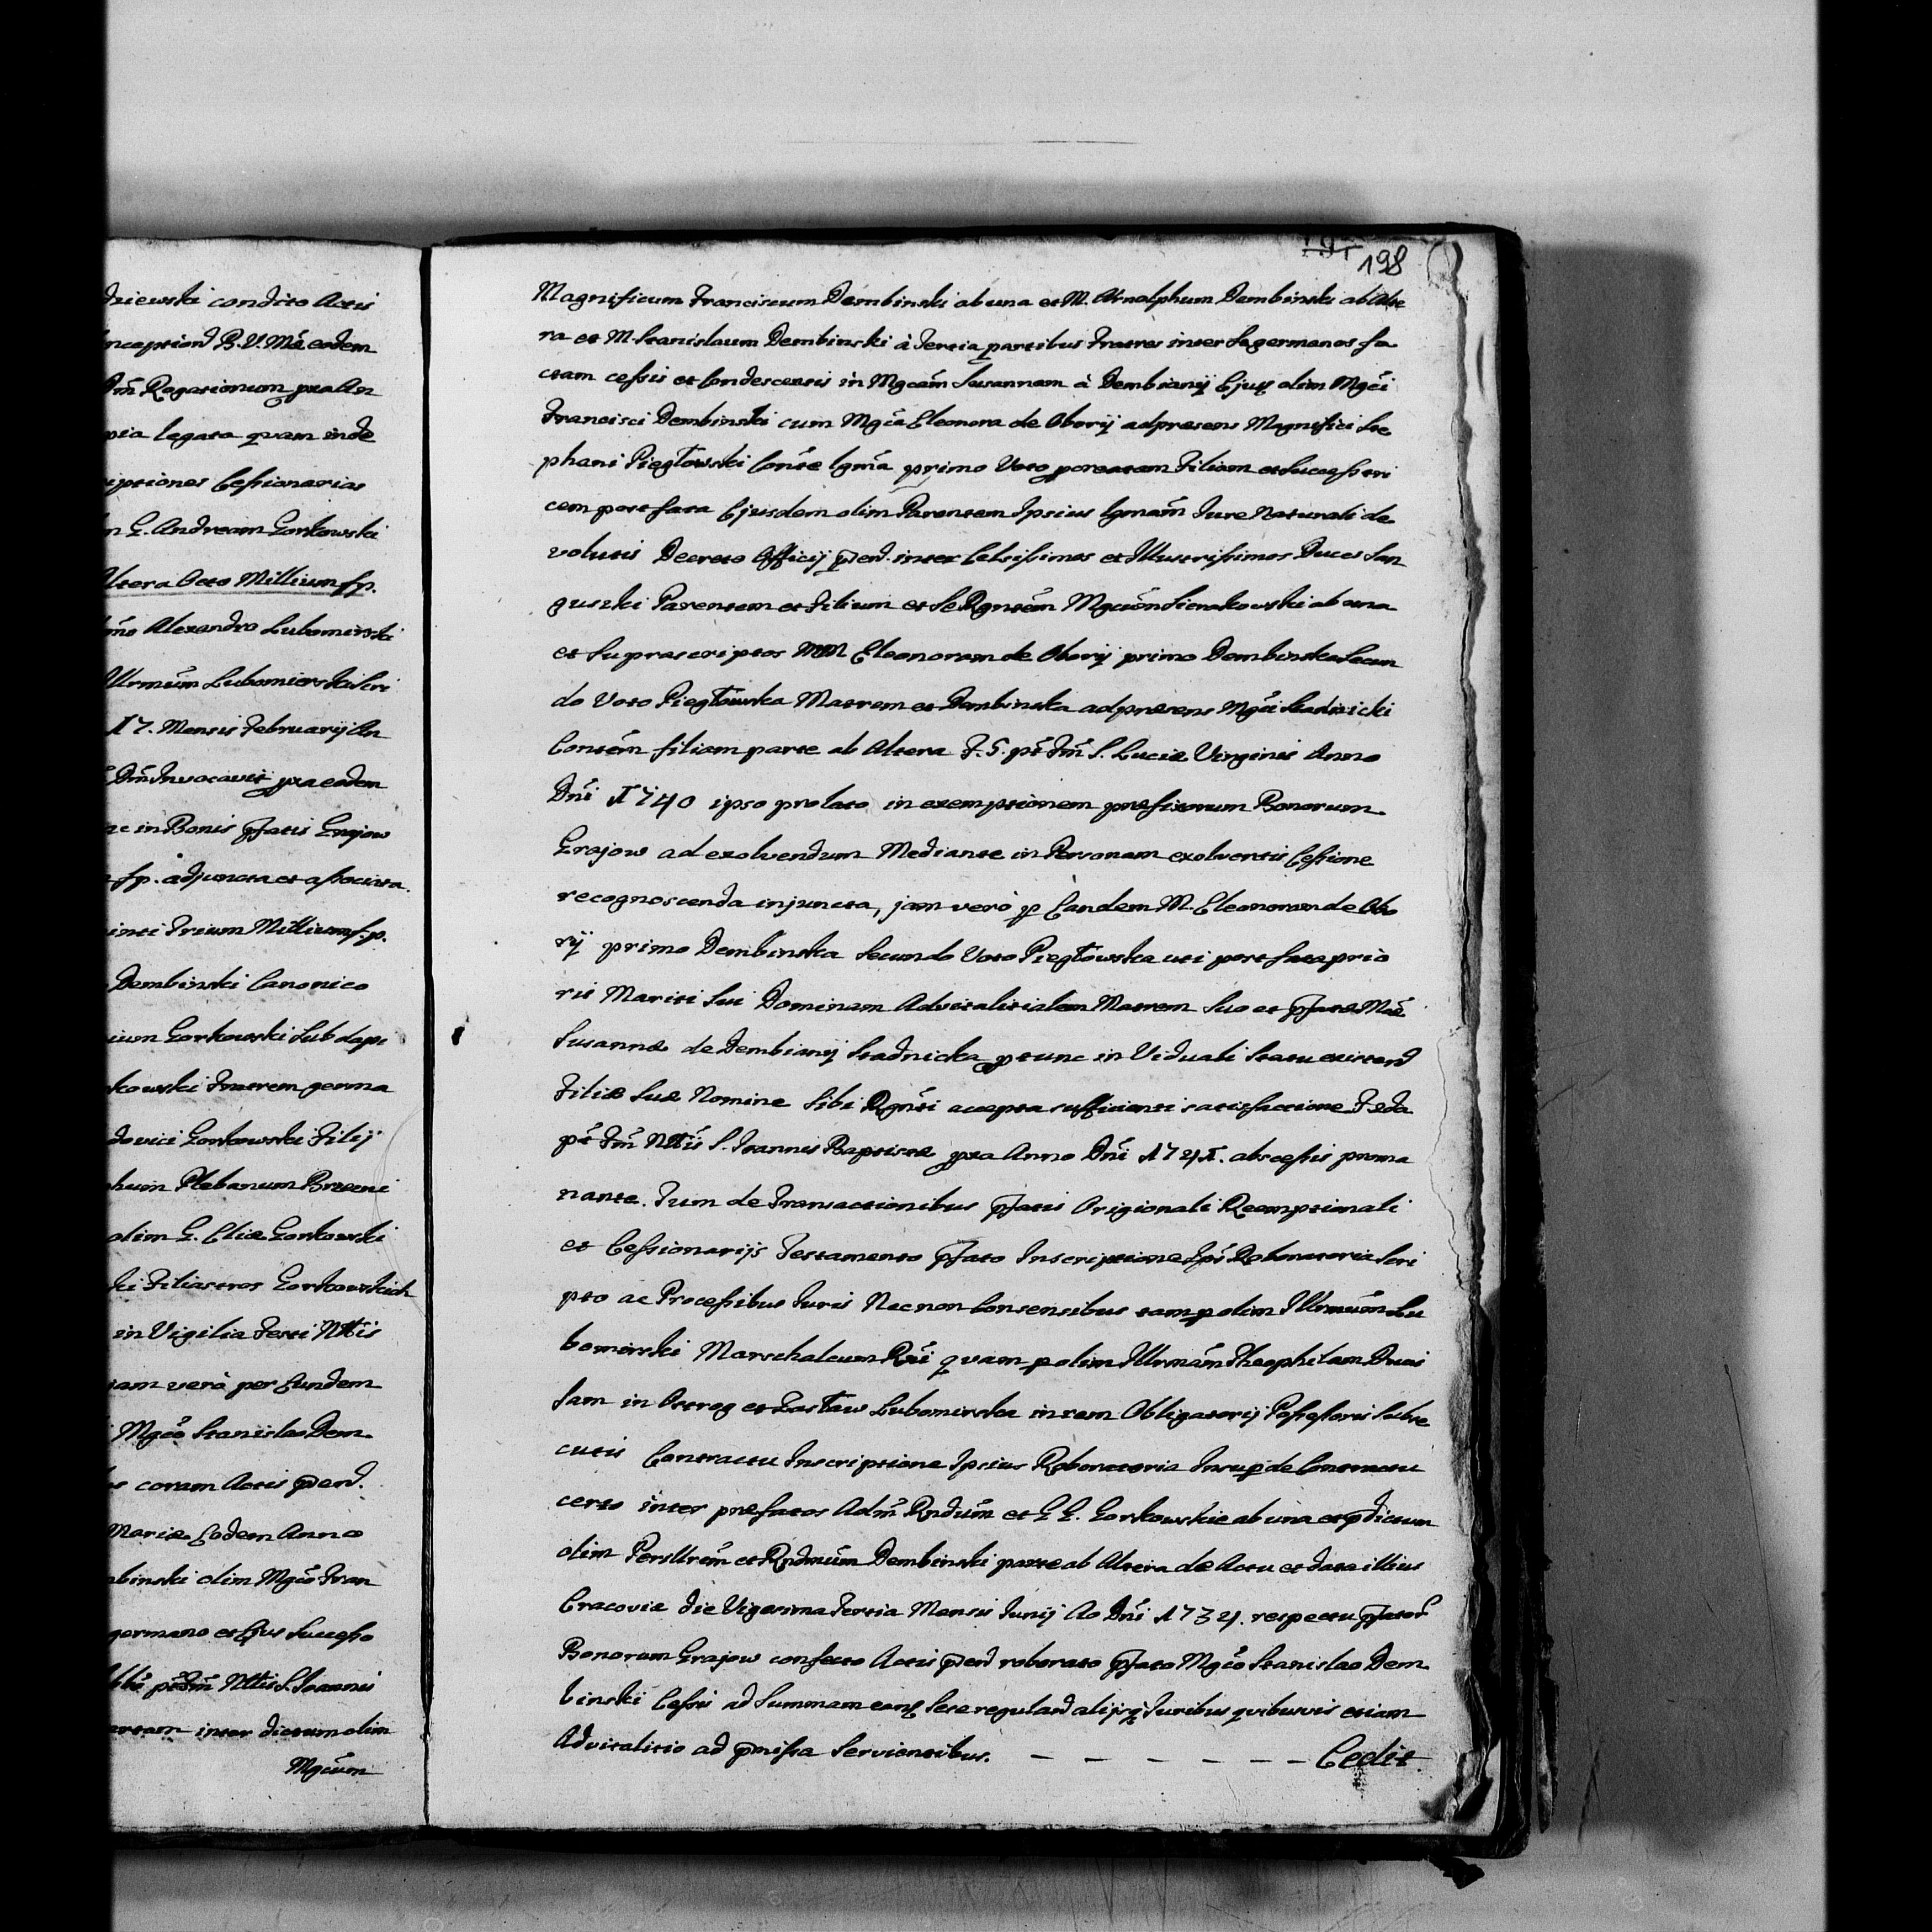 dziewski condito Actis
nceptionē B.V. Mæ eodem
Dm̃ Rogationum pxa An
pia legata qvam inde
iptiones Cessionarias
m G. Andream Gorkowski
Altera Octo Millium fp.
Alexandro Lubomirski
Illrmũm Lubomierski
17. Mensis Februarij An
Dm̃ Invocavit pxa eodem
in Bonis pfatis Grajow
fp. adjuncta et associata.
Trium Millium f. p.
Dembinski Canonico
ium Gorkowski Subdapi
kowski Fratrem germa
dovici Gorkowski Filij
hum Plebanum Brzezni
olim G. Eliæ Gorkowski
ki Filiastros Gorkowskich
in Vigilia Festi Nttis
iam verò per Eundem
Mgĉo Stanislao Dem
coram Actis p̄end.
Mariæ Eodem Anno
mbinski olim Mgĉo Fran
germano et Ejus Successo
Nttis S. Joannis
ertam inter dictum olim
Mgĉum
198
Magnificum Franciscum Dembinski ab una et M. Arnolphum Dembinski ab Alte
ra et M. Stanislaum Dembinski à Tertia partibus Fratres inter Se germanos fa
ctam cessis et Condescensis in Mgĉam Susannam à Dembiany Ejusq olim Mgĉi
Francisci Dembinski cum Mgĉa Eleonora de Obory adpresens Magnifici Ste
phani Piegłowski Conte Igm̃a primo Voto procreatam Filiam et Successtri
cem post fata Ejusdem olim Parentem Ipsius Igmãm Jure Naturali de
volutis Decreto Officij p̄end. inter Celsissimos et Illustrissimos Duces San
guszki Parentem et Filium et Se Rgntẽm Mgĉum Sierakowski ab una
et Suprascriptos MM Eleonoram de Obory primo Dembinska Secun
do Voto Piegłowska Matrem et Dembinska adpresens Mgĉi Stadnicki
Contẽm filiam parte ab Altera F. 5. pt Fm̃ S. Luciæ Virginis Anno
Dni 1740 ipso prolato in exemptionem præfixorum Bonorum
Grajow ad exolvendum Mediante in Personam exolventis Cessione
recognoscenda injuncta, jam verò p Eandem M. Eleonoram de Obo
ry primo Dembinska Secundo Voto Piegłowska uti post fata prio
ris Mariti Sui Dominam Advitalitialem Matrem Suo et pfatæ Mæ
Susannæ de Dembiany Stadnicka ptunc in Viduali Statu existenē
Filiæ Suæ Nomine Sibi Rgnti accepta sufficienti satisfactione Fda
pt Fm̃ Nttis S. Joannis Baptistæ pxa Anno Dni 1741. abscessis proma
nante. Tum de Transactionibus pfatis Origionali Reemptionali
et Cessionarijs Testamento pfato Inscriptione Ips Roboratoria Scri
pto ac Processibus Juris Necnon Consensibus tam p olim Illrmũm Lu
bomirski Marschalcum Rni qvam p olim Illrmãm Theophilam Duci
ssam in Ostrog et Zasław Lubomirska in rem Obligatorij Possessoris Subse
cutis Contractu Inscriptione Ipsius Roboratoria Insup de Contractu
certo inter præfatos Adm̃ Rndũm et G G. Gorkowskie ab una et p̄dictum
olim Perillrẽm et Rndmũm Dembinski parte ab Altera de Actu et Data illius
Cracoviæ die Vigesima Tertia Mensis Junij Ao Dni 1734. respectu pfator̃
Bonorum Grajow confecto Actis p̄end roborato pfato Mgĉo Stanislao Dem
binski Cessis ad Summam eamq Sese regulanē alijsq Juribus qvibusvis etiam
Advitalitio ad p̄missa Servientibus. — — — — — — Cedit.